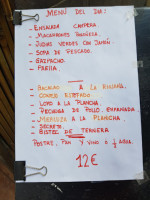 MENÚ DEL DIA:
- ENSALADA CAMPERA
- MACARRONES
- JUDIAS VERDES CON JAMÓN
- SOPA DE PESCADO.
- GAZPACHO.
- PAELLA
- BACALAO A LA
- CONEJO
- LOMO A LA PLANCHA.
- PECHUGA DE POLLO EMPANADA
- MERLUZA A LA PLANCHA
- SECRETO.
- BISTEC DE TERNERA
POSTRE, PAN Y VINO O ½ AGUA.
12€